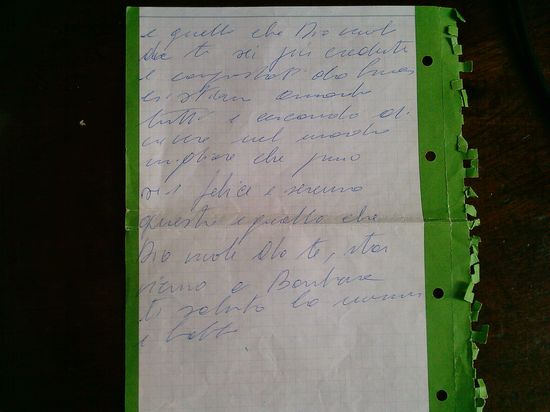 e quello che Dio vuol
te ti sei più creduta
e comportat da buon
cristian amando
tutti e cercando di
vivere nel modo
migliore che puoi
sii felice e serena
questo e quello che
Dio vuole da te, sta
vicino a Barbara
ti saluto la mamma
e babbo